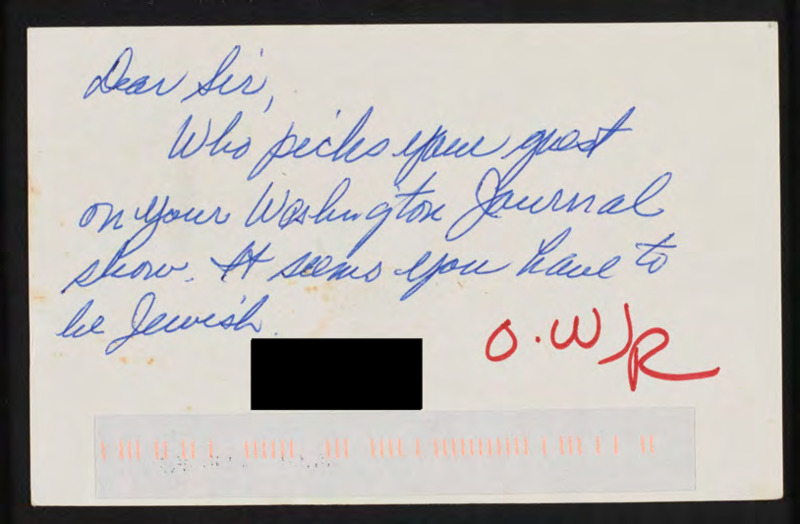 Dear Sir,
Who picks your guest
on your Washington Journal
show. It seems you have to
be Jewish.
O.W/R